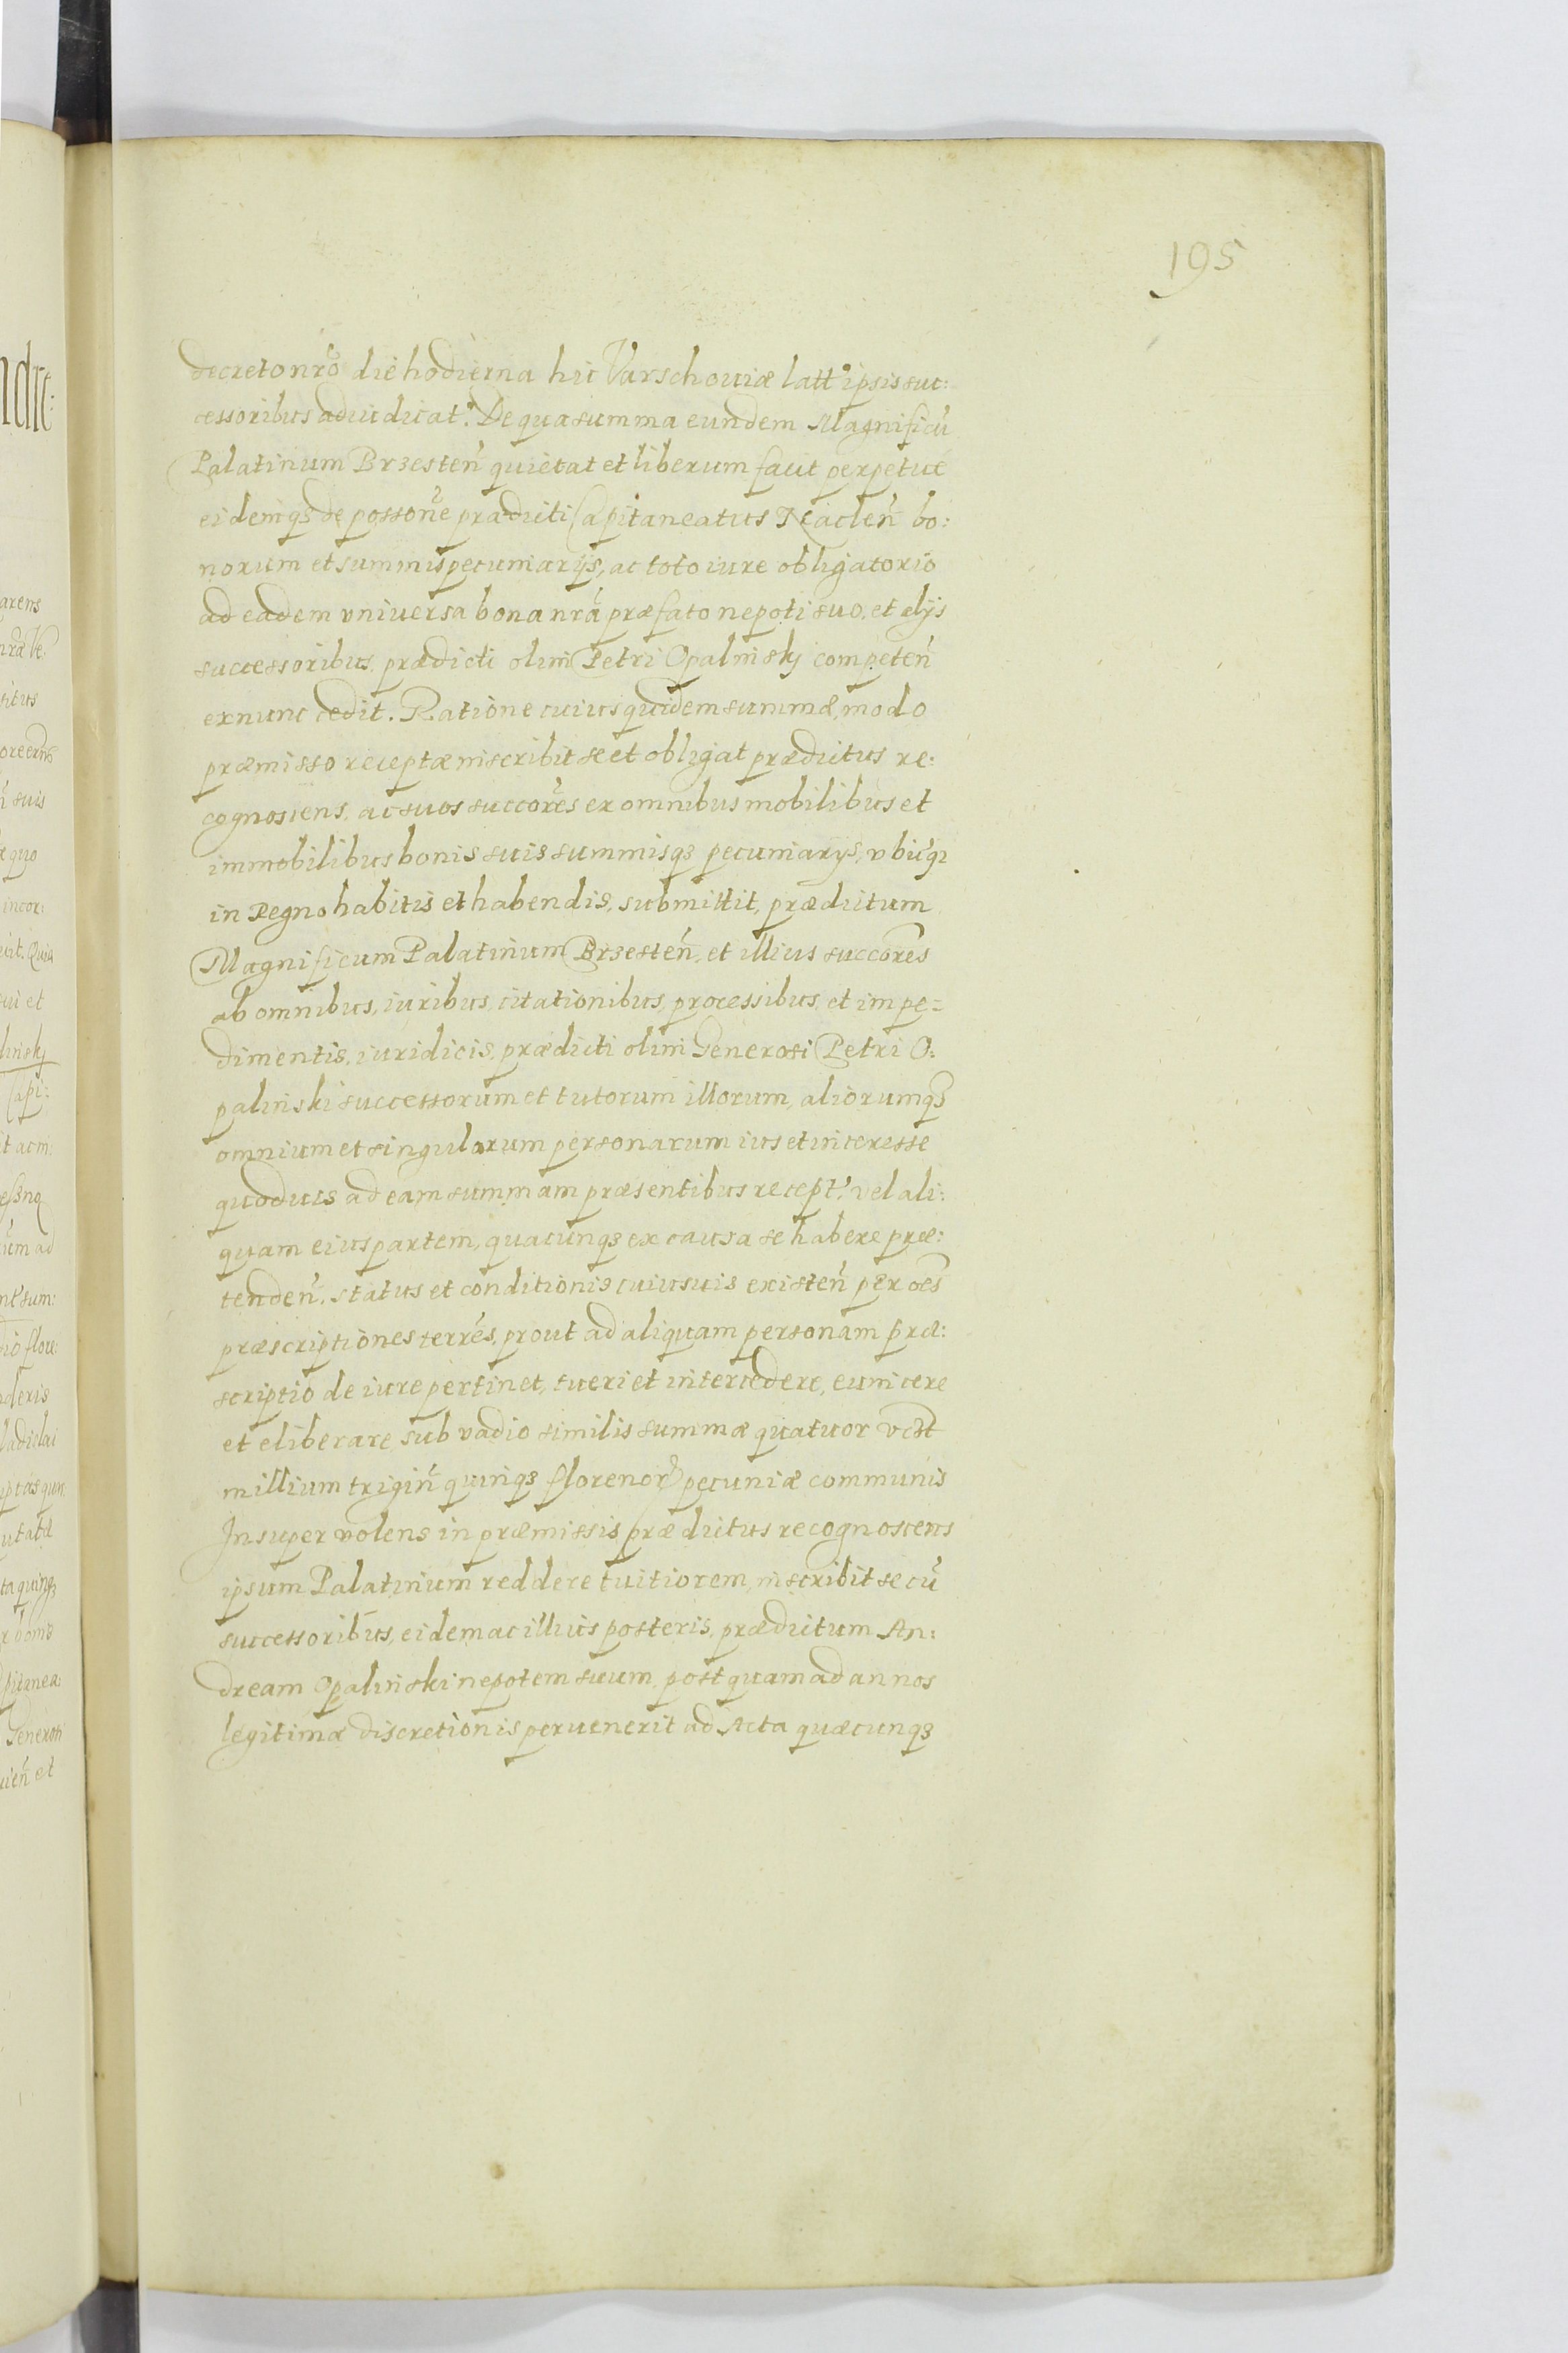 195
decreto nr̃o die hodierna hic Varschouiæ latt° ipsis suc:
cessoribus adiudicat°. De qua summa eundem Magnificũ
Palatinum Brzesteñ quietat et liberum facit perpetue
eidemq3 de possoñe prædicti Capitaneatus Nacleñ bo:
norum et summis pecuniarijs, ac toto iure obligatorio
ad eadem vniuersa bona nr̃a præfato nepoti suo, et alijs
successoribus prædicti olim Petri Opalinskj competeñ
ex nunc cedit. Ratione cuius quidem summæ, modo
præmisso receptæ inscribit se et obligat prædictus re:
cognoscens, ac suos succores̃ ex omnibus mobilibus et
immobilibus bonis suis summisq3 pecuniarys, vbicq3
in Regno habitis et habendis, submittit, prædictum
Magnificum Palatinum Brzesteñ, et illius succores̃
ab omnibus, iuribus, citationibus, processibus, et impe=
dimentis, iuridicis, prædicti olim Generosi Petri O:
palinski successorum et tutorum illorum, aliorumq3
omnium et singularum personarum ius et interesse
quoduis ad eam summam præsentibus recept°, vel ali:
quam eius partem, quacunq3 ex causa se habere præ:
tendeñ, status et conditionis cuiusuis existeñ per oẽs
præscriptiones terrẽs, prout ad aliquam personam præ:
scriptio de iure pertinet, tueri et intercedere, euincere
et eliberare sub vadio similis summæ quatuor
millium trigiñ quinq3 florenor pecuniæ communis
Insuper volens in præmissis prædictus recognoscens
ipsum Palatinum reddere tuitiorem, inscribit se cũ
successoribus, eidem ac illius posteris, prædictum An:
dream Opalinski nepotem suum, postquam ad annos
legitimæ discretionis peruenerit ad Acta quæcunq3